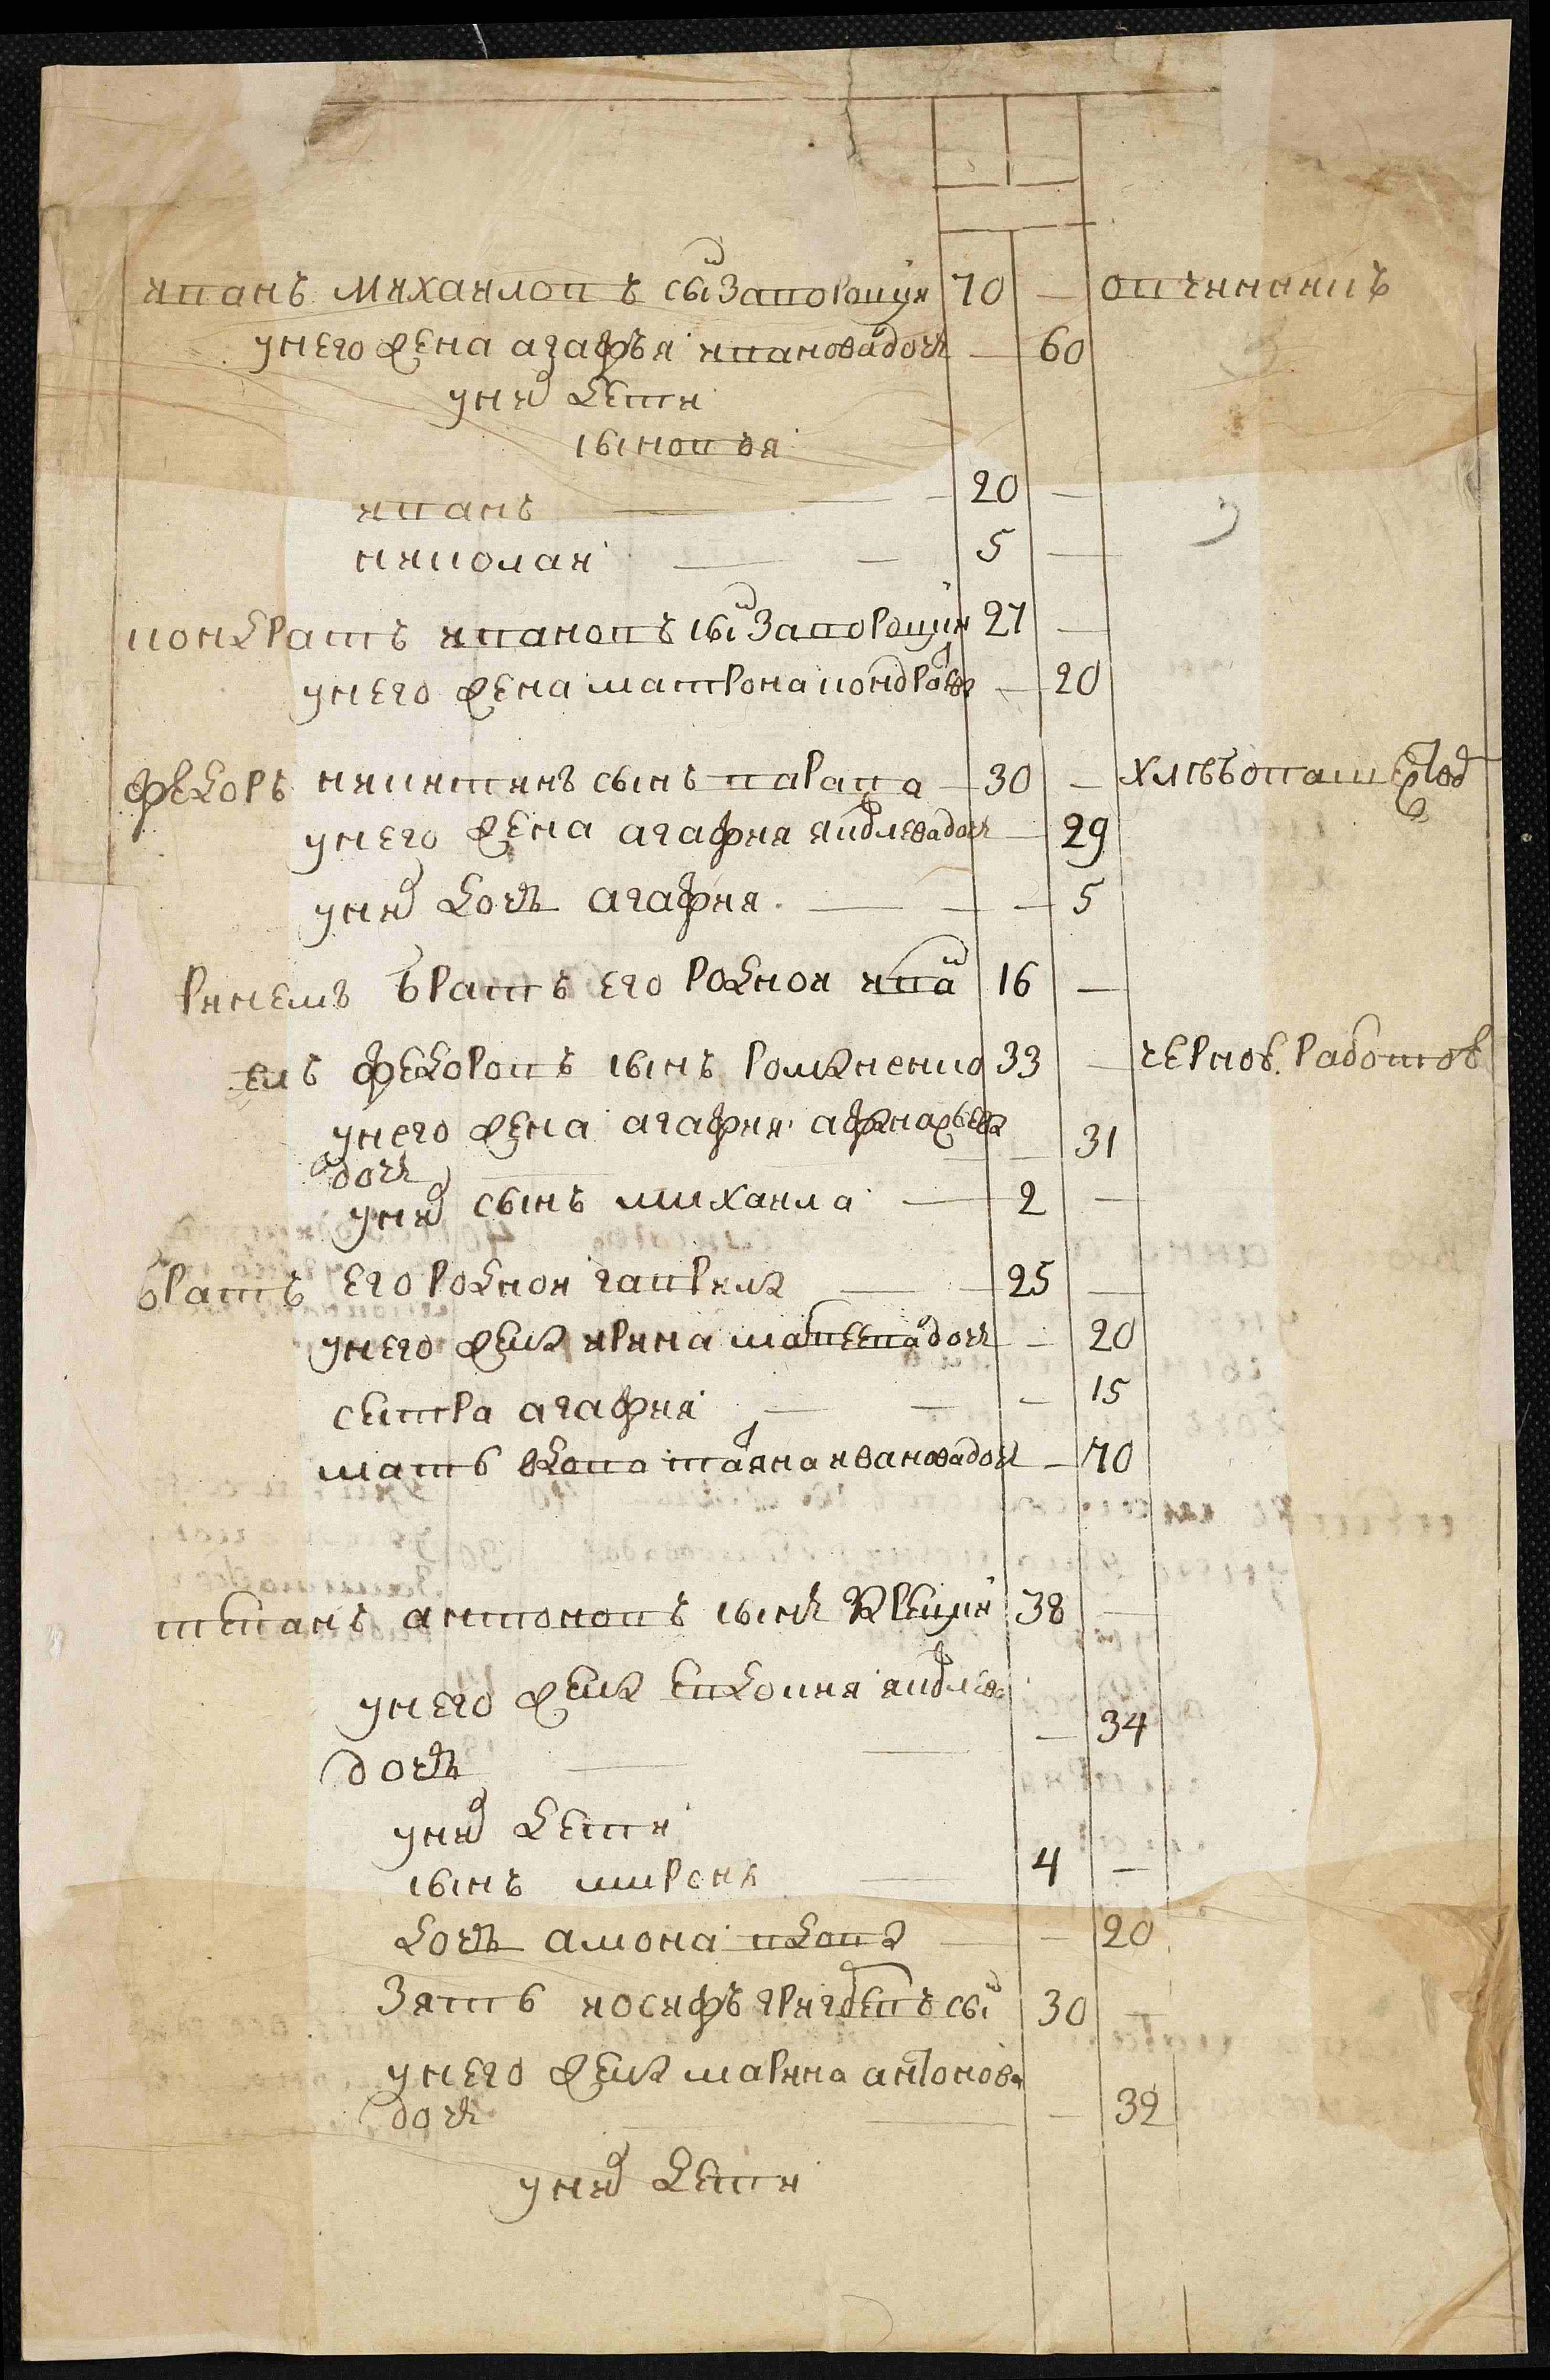 иванъ михаиловъ сы Запорощуи 70 — овчинникъ
унего жена агафья ивановадоч — 60
уних дети
сыновья
иванъ — 20 —
николаи — 5 —
кондратъ ивановъ сы Запорощуи 27 —
унего жена матрона кондрате — 20
федоръ никитинъ сынъ варава — 30 — хлѣбопаш
унего жена агафия яковлевадоч — 29
уних дочь агафия — 5
братъ его родной ива 16 —
федоровъ сынъ романенко 33 — чернов. работов
унего жена агафия
доч — 31
уних сынъ михаила — 2 —
братъ его родной гаврила — 25 —
унего жена ирина матвеевадоч — 20
сестра агафия — 15
мать вдова таяна ивановадоч — 70
степанъ антоновъ сынъ 38 —
унего жена евдокия яковлева
дочь — 34
уних дети
сынъ миронъ 4 —
дочь вдова — 20
Зять иосифъ сы 30 —
унего жена марина антонова
доч — 32
уних дети